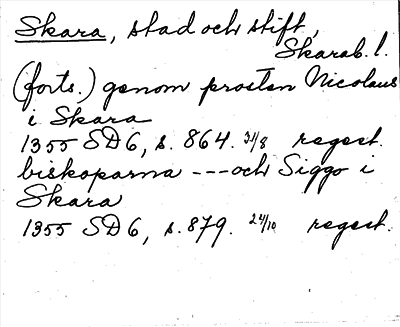 Skara, stad och stift,
Skarab. l.
(forts.) genom prosten Nicolaus
i Skara
1355 SD 6, s. 864. 31/8 regest.
biskoparna --- och Siggo i
Skara
1355 SD 6, s. 879. 24/10 regest.